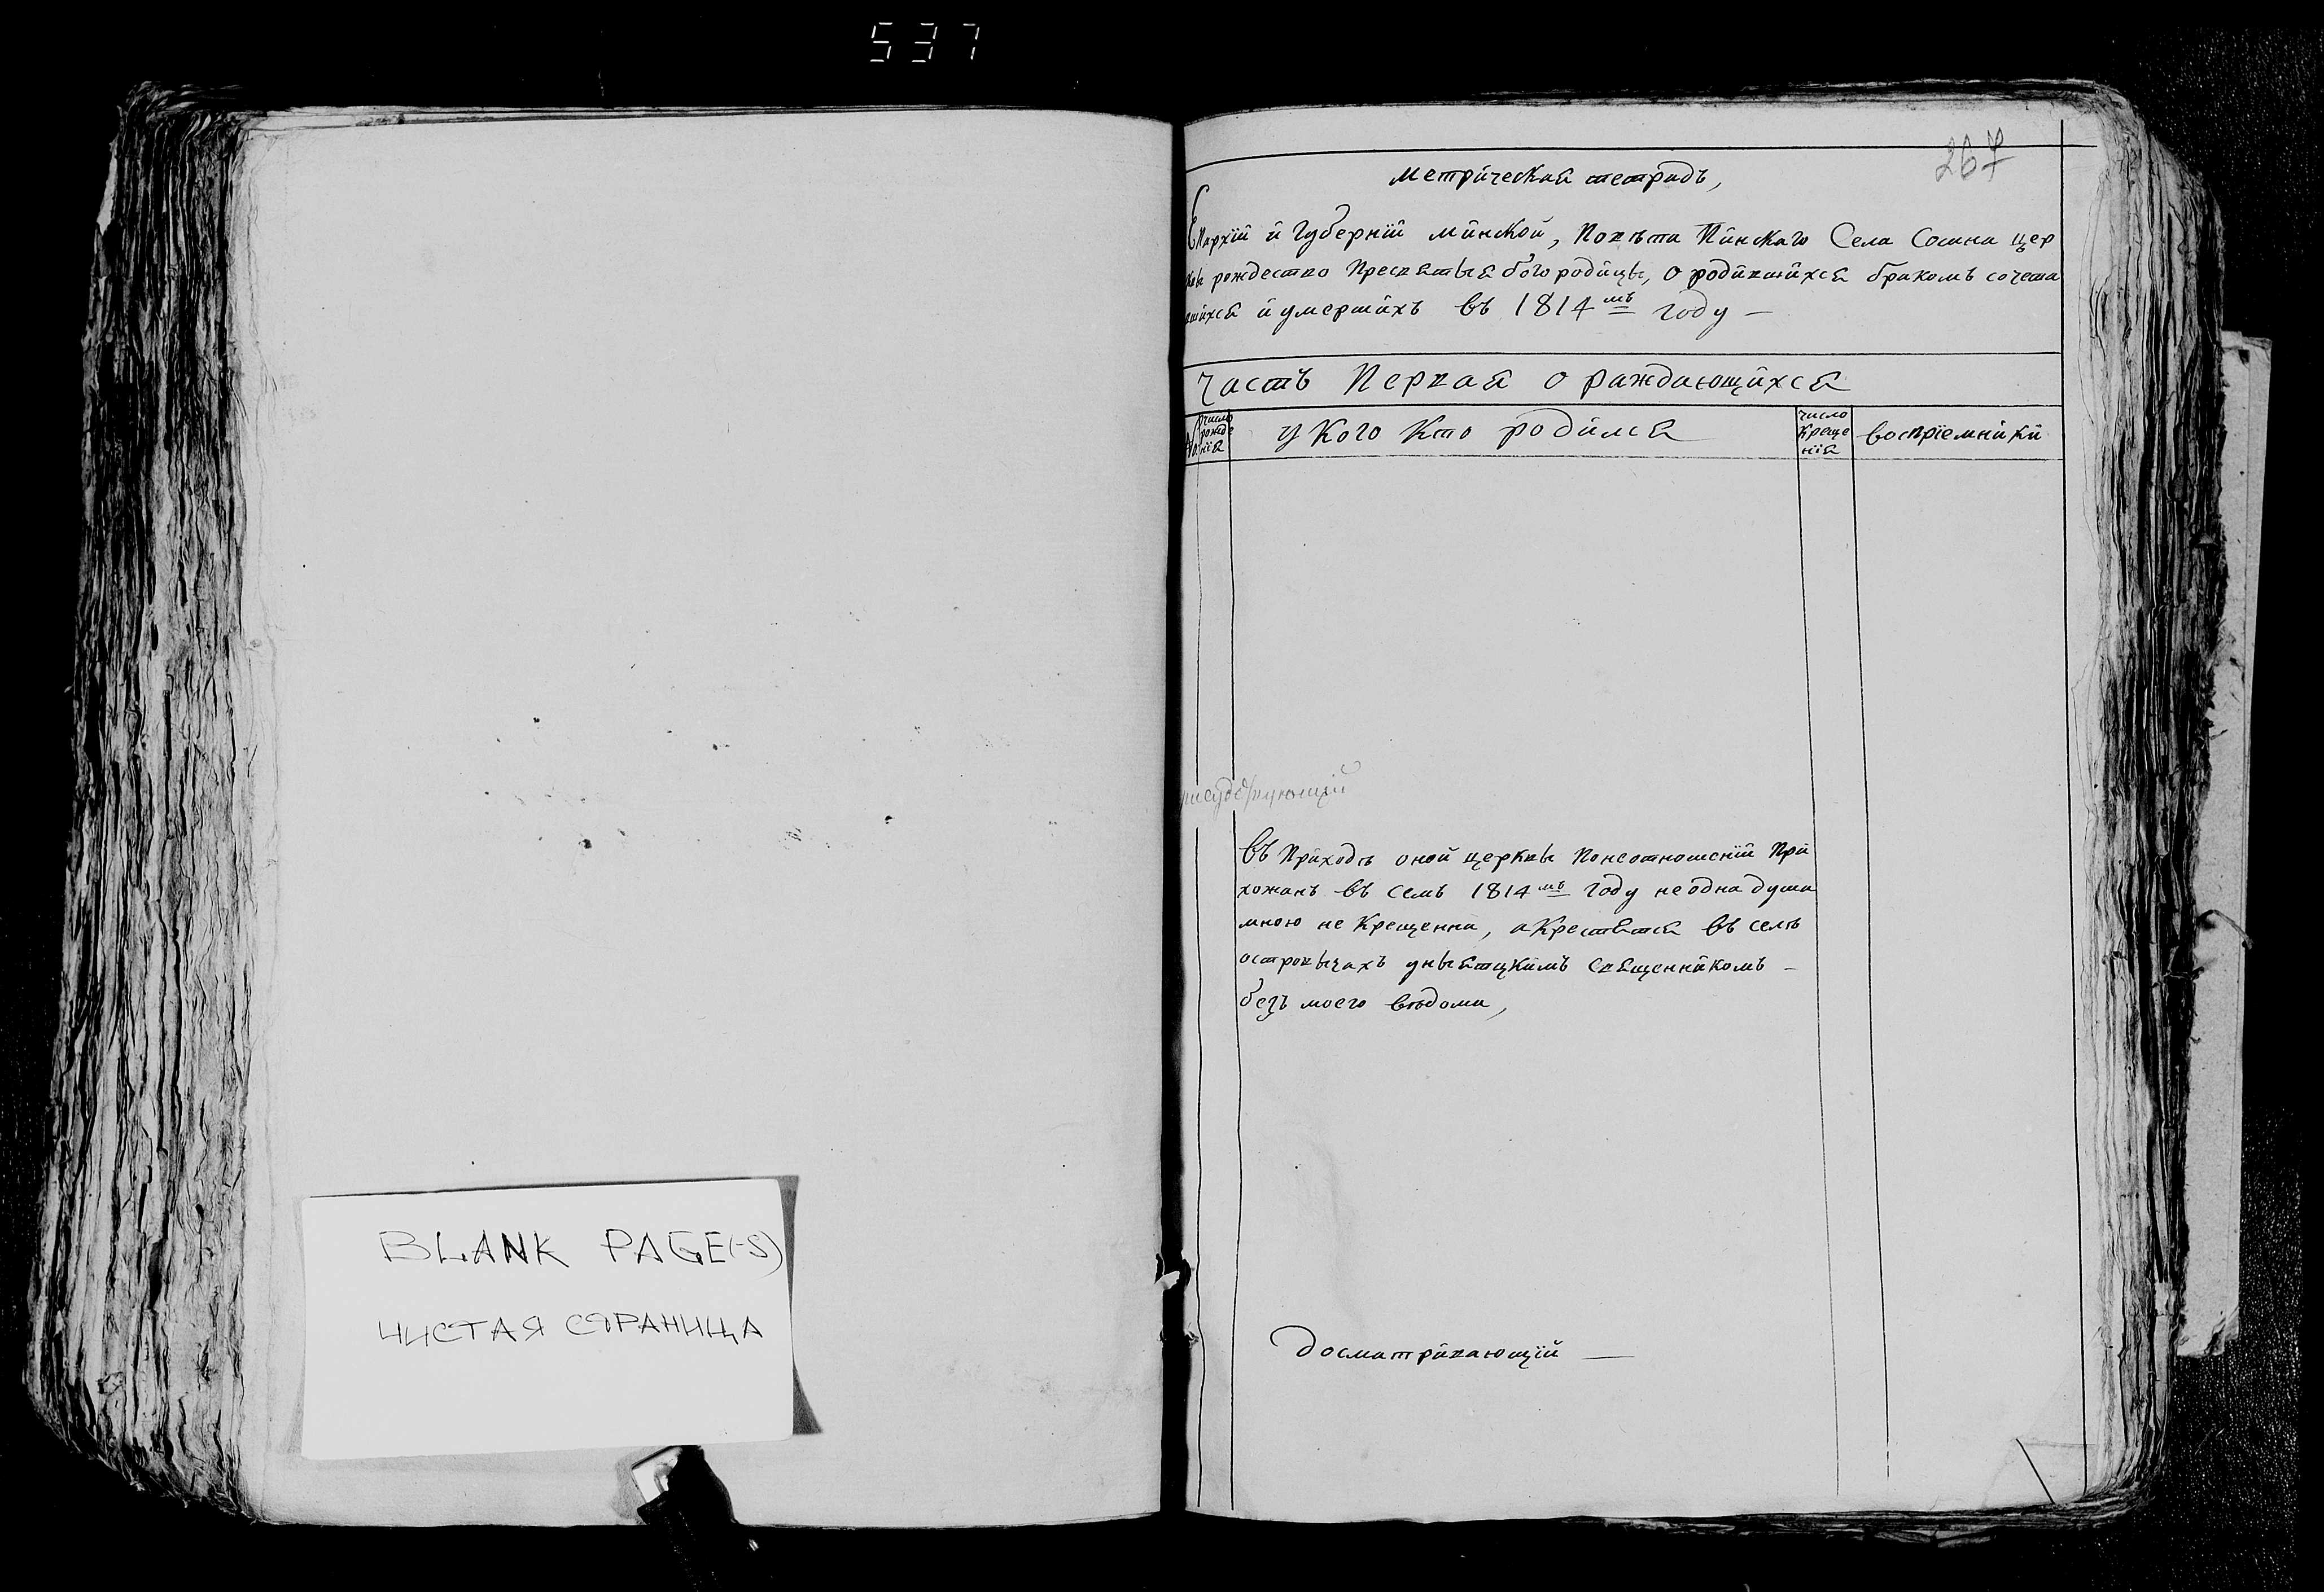 537
BLANK PAGE(-S)
ЧИСТАЯ СТРАНИЦА
267
Метрическая тетрадь,
Епархіи и Губерніи Минской, Повѣта Пинскаго Села Сосна цер
квы рождество Пресвятыя богородицы, о родившихся бракомъ сочета
вшихся и умершихъ въ 1814мъ году —
Часть Первая о раждающихся
№ число рожденія
у Кого Кто родился
число Крещенія
воспріемники
въ Приходѣ оной церквы Понеотношеніи При
хожанъ въ семъ 1814мъ году не одна душа
мною не Крещенна, а Крестятся въ селѣ
островычахъ уныятцкимъ священникомъ —
безъ моего вѣдома,
Досматривающій —